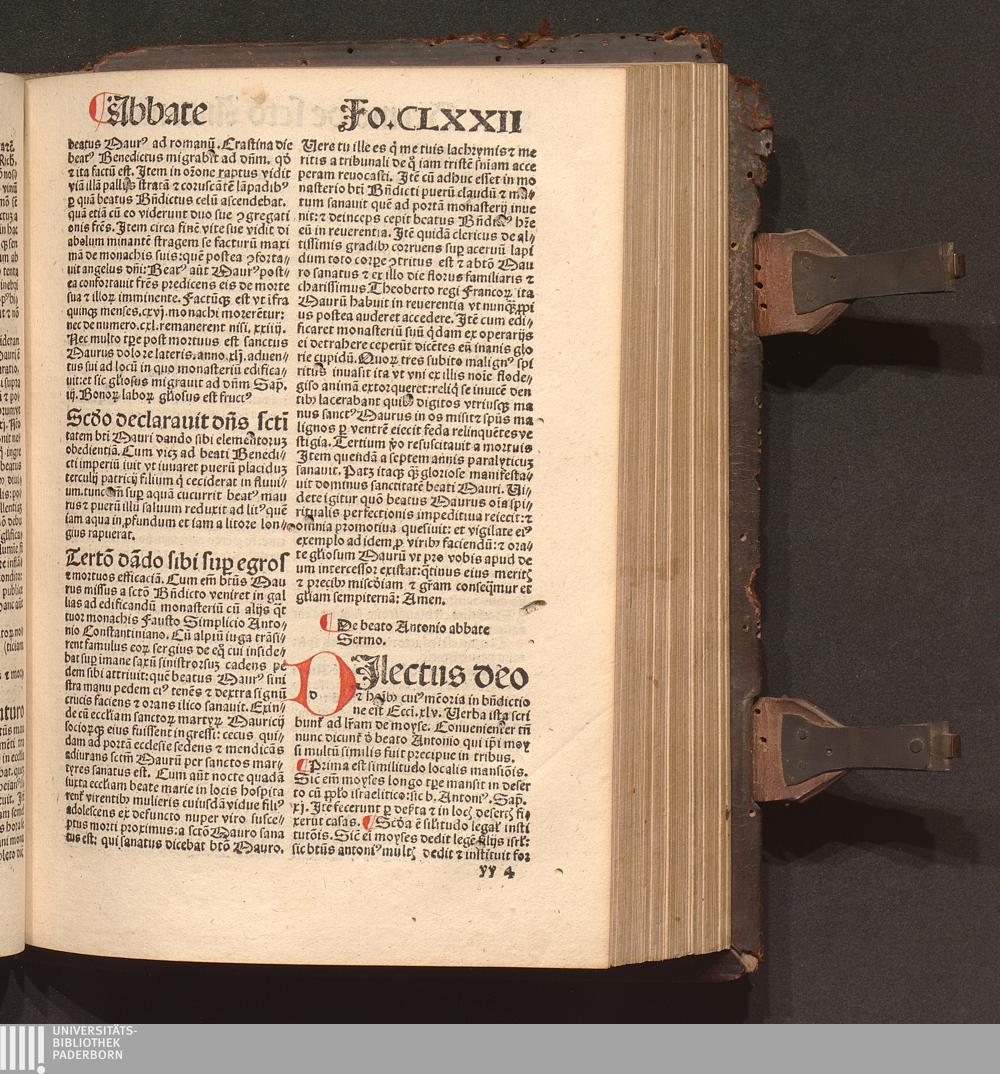 Abbate
Fo. CLXXII
beatus Maurꝰ ad romanū. Crastina die
beatꝰ Benedictus migrabit ad dn̄m. qď
⁊ ita factū est. Item in orōne raptus vidit
viā illā pallijs stratā ⁊ coruscātē lāpadibꝰ
ꝑ quā beatus Bn̄dictus celū ascendebat.
quā etiā cū eo viderunt duo sue ꝯgregati
onis fr̄es. Item circa finē vite sue vidit di
abolum minantē stragem se facturū maxi
mā de monachis suis: quē postea ꝯforta⸗
uit angelus dn̄i: Beatꝰ aūt Maurꝰ post⸗
ea confortauit fr̄es predicens eis de morte
sua ⁊ illoꝝ imminente. Factūqꝫ est vt ifra
quinqꝫ menses. cxvj. monachi morerētur:
nec de numero. cxl. remanerent nisi. xxiiij.
Nec multo tꝑe post mortuus est sanctus
Maurus dolore lateris. anno. xlj. aduen⸗
tus sui ad locū in quo monasteriū edifica⸗
uit: et sic gl̓iosus migrauit ad dn̄m Sap.
iij. Bonoꝝ laboꝝ gl̓iosus est fructꝰ
Scďo declarauit dn̄s scti
tatem bti Mauri dando sibi elementorum
obedientiā. Cum vicꝫ ad beati Benedi⸗
cti imperiū iuit vt iuuaret puerū placidum
terculij patricij filium q̇ ceciderat in fluui⸗
um. tunc em̄ suꝑ aquā cucurrit beatꝰ mau
rus ⁊ puerū illū saluum reduxit ad litꝰ quē
iam aqua in ꝓfundum et iam a litore lon⸗
gius rapuerat.
Tertō dādo sibi suꝑ egros
⁊ mortuos efficaciā. Cum em̄ btūs Mau
rus missus a sctō Bn̄dicto veniret in gal
lias ad edificandū monasteriū cū alijs q̇t
tuor monachis Fausto Simplicio Anto⸗
nio Constantiniano. Cū alpiū iuga trāsi⸗
rent famulus eoꝝ sergius de eq̇ cui inside⸗
bat suꝑ imane saxū sinistrorsum cadens pe
dem sibi attriuit: quē beatus Maurꝰ sini
stra manu pedem eiꝰ tenēs ⁊ dextra signū
crucis faciens ⁊ orans ilico sanauit. Exin⸗
de cū eccl̓iam sanctoꝝ martyꝝ Mauricij
socioꝝqꝫ eius fuissent ingressi: cecus qui⸗
dam ad portā ecclesie sedens ⁊ mendicās
adiurans sctm̄ Maurū per sanctos mar⸗
tyres sanatus est. Cum aūt nocte quadā
iuxta eccl̓iam beate marie in locis hospita
rent̉ virentibꝫ mulieris cuiusdā vidue filiꝰ
adolescens ex defuncto nuper viro susce⸗
ptus morti proximus: a sctō Mauro sana
tus est: qui sanatus dicebat btō Mauro.
Uere tu ille es q̇ me tuis lachrymis ⁊ me
ritis a tribunali de q̇ iam tristē sn̄iam acce
peram reuocasti. Itē cū adhuc esset in mo
nasterio bti Bn̄dicti puerū claudū ⁊ mu⸗
tum sanauit quē ad portā monasterij inue
nit: ⁊ deinceps cepit beatus Bn̄dictꝰ hr̄e
eū in reuerentia. Itē quidā clericus de al⸗
tissimis gradibꝫ corruens suꝑ aceruū lapi
dum toto corꝑe ꝯtritus est ⁊ abtō Mau
ro sanatus ⁊ ex illo die florus familiaris ⁊
charissimus Theoberto regi Francoꝝ ita
Maurū habuit in reuerentia vt nunqꝫ ꝓpi
us postea auderet accedere. Itē cum edi⸗
ficaret monasteriū suū q̇dam ex operarijs
ei detrahere ceperūt dicētes eū inanis glo
rie cupidū. Quoꝝ tres subito malignꝰ spi
ritus inuasit ita vt vni ex illis noīe flode⸗
giso animā extorqueret: reliq̇ se inuicē den
tibꝫ lacerabant quibꝫ digitos vtriusqꝫ ma
nus sanctꝰ Maurus in os misit ⁊ spūs ma
lignos ꝑ ventrē eiecit feda relinquētes ve
stigia. Tertium v̓o resuscitauit a mortuis
Item quendā a septem annis paralyticum
sanauit. Patꝫ itaqꝫ q̇ꝫ gloriose manifesta⸗
uit dominus sanctitatē beati Mauri. Ui⸗
dete igitur quō beatus Maurus oīa spi⸗
ritualis perfectionis impeditiua reiecit: ⁊
omnia promotiua quesiuit: et vigilate eiꝰ
exemplo ad idem ꝓ viribꝫ faciendū: ⁊ ora⸗
te gl̓iosum Maurū vt pro vobis apud de
um intercessor existat: q̇tinus eius meritꝭ
⁊ precibꝫ mis̄coīam ⁊ gr̄am conseq̇mur et
gl̓iam sempiternā: Amen.
De beato Antonio abbate
Sermo.
DIlectus deo
d
⁊ hoībꝫ cuiꝰ mēoria in bn̄dictio
ne est Ecci. xlv. Uerba ista scri
bunt̉ ad lr̄am de moyse. Conuenienter tn̄
nunc dicunt̉ ď beato Antonio qui ip̄i moy
si multū similis fuit precipue in tribus.
Prima est similitudo localis mansiōis.
Sic em̄ moyses longo tꝑe mansit in deser
to cū ꝓpl̓o israelitico: sic b. Antonꝰ. Sap.
xj. Itē fecerunt ꝑ deſ̓ta ⁊ in locꝭ desertꝭ fi⸗
xerūt casas. Scďa ē sil̓itudo legal̓ insti
tutōis. Sic ei moyses dedit legē filijs isrl̓:
sic btūs antoniꝰ multꝭ dedit ⁊ instituit for
yy 4
UNIVERSITÄTS-
BIBLIOTHEK
PADERBORN